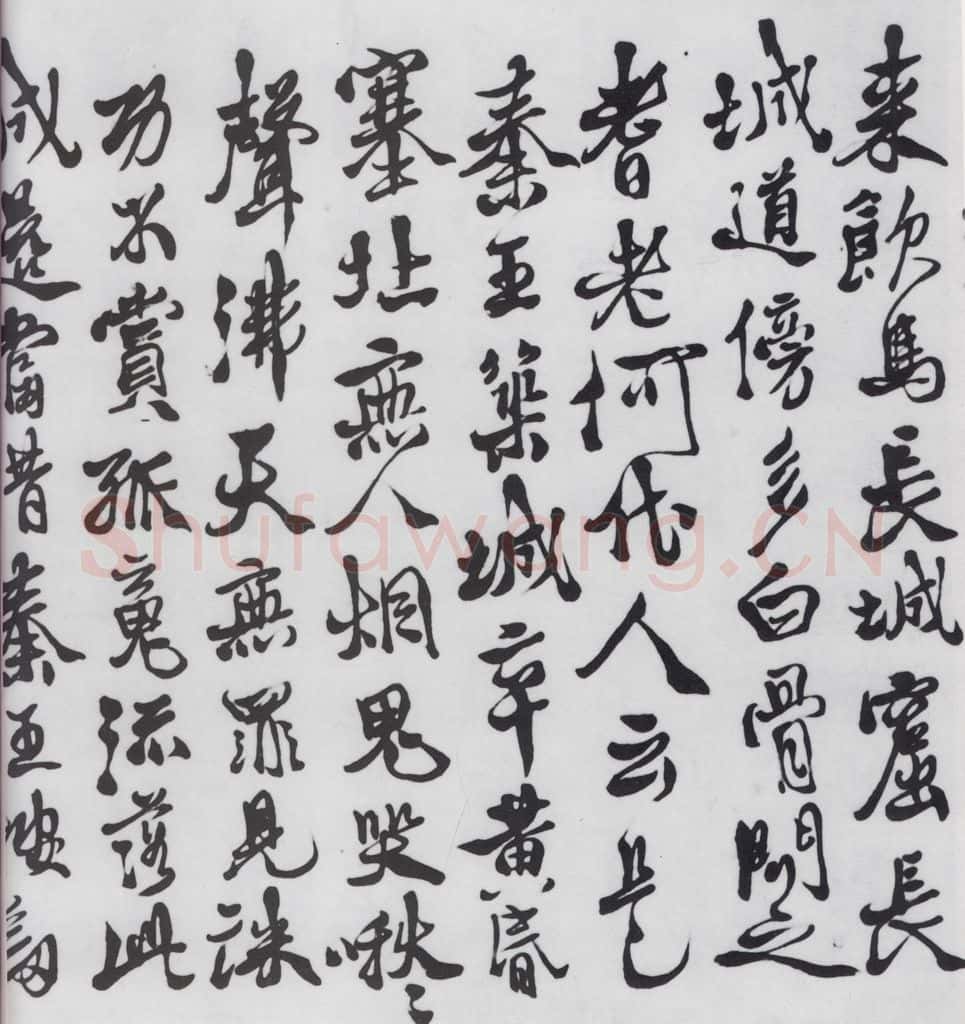 来飲馬長城窟長
城道傍多白骨問之
耆老何代人云是
秦王築城卒黄昏
塞北無人烟鬼哭啾〻
聲沸天無罪見誅
功不賞孤䰟流落此
城邊當昔秦王按劍
Shufawang.CN